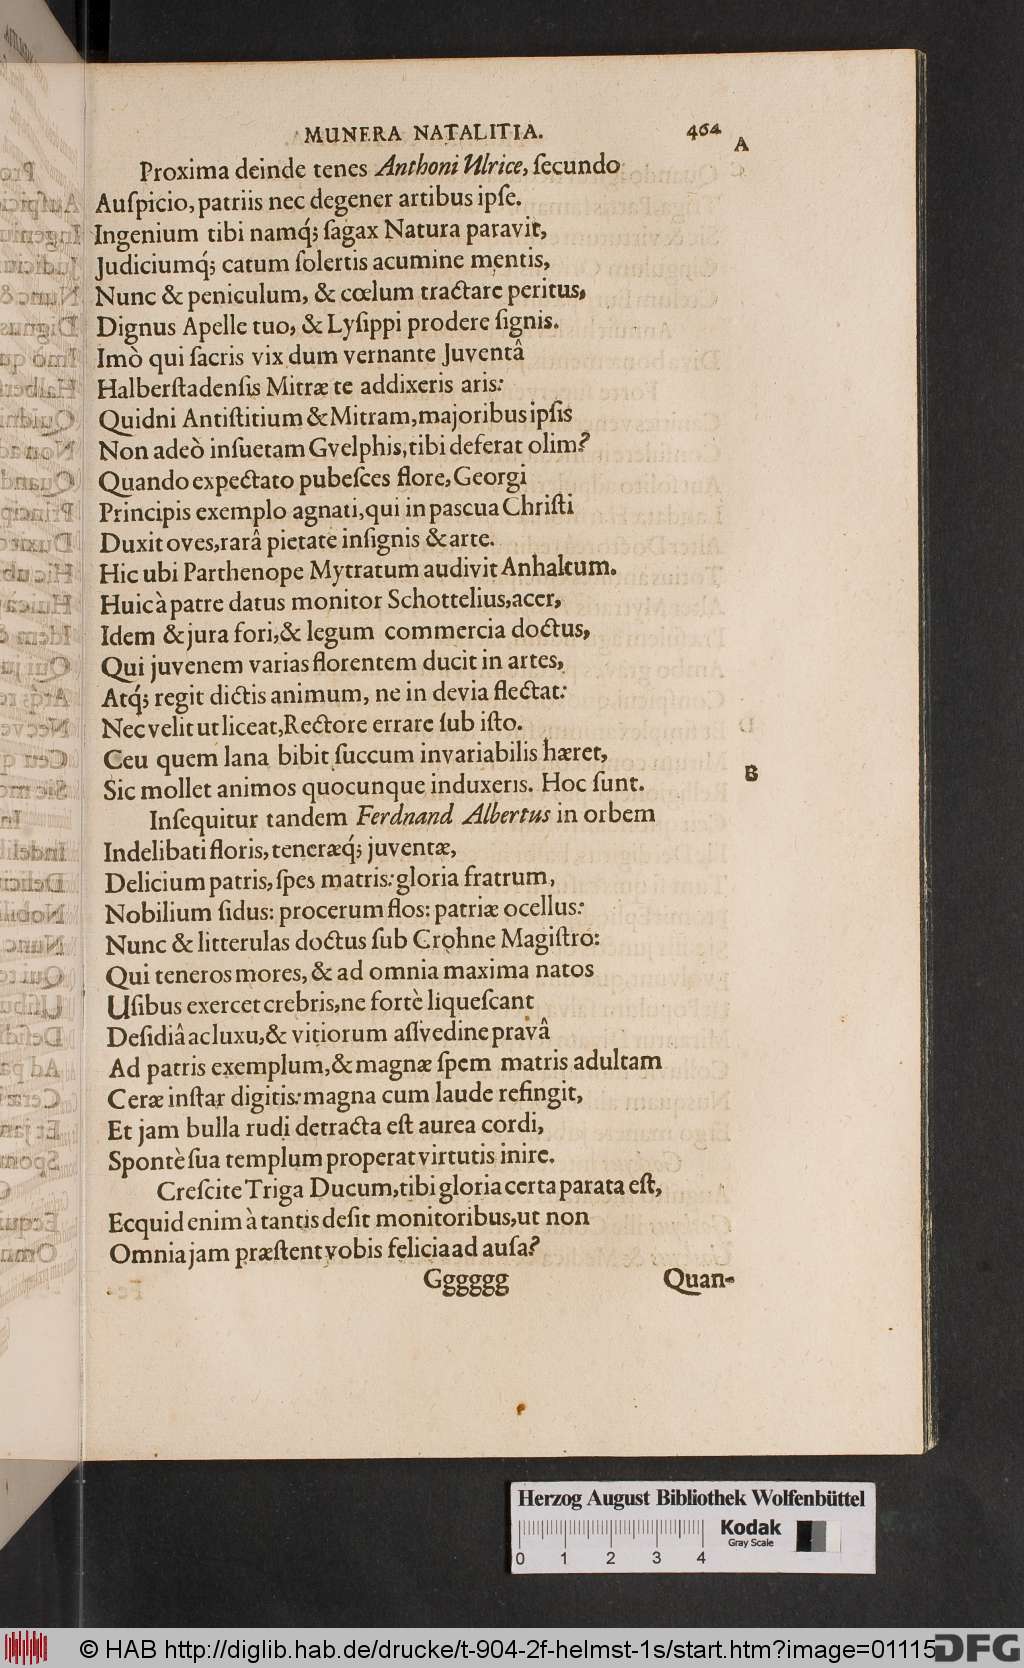 MUNERA NATALITIA. 464
A
Proxima deinde tenes Anthoni Ulrice, ſecundo
Auſpicio, patriis nec degener artibus ipſe.
Ingenium tibi namq́; ſagax Natura paravit,
Judiciumq́; catum ſolertis acumine mentis,
Nunc & peniculum, & cœlum tractare peritus,
Dignus Apelle tuo, & Lyſippi prodere ſignis.
Imò qui ſacris vix dum vernante Juventâ
Halberſtadenſis Mitræ te addixeris aris:
Quidni Antiſtitium & Mitram, majoribus ipſis
Non adeò inſuetam Gvelphis, tibi deferat olim?
Quando expectato pubeſces flore, Georgi
Principis exemplo agnati, qui in pascua Chriſti
Duxit oves, rarâ pietate inſignis & arte.
Hic ubi Parthenope Mytratum audivit Anhaltum.
Huic à patre datus monitor Schottelius, acer,
Idem & jura fori, & legum commercia doctus,
Qui juvenem varias florentem ducit in artes,
Atq́; regit dictis animum, ne in devia flectat:
Nec velit ut liceat, Rectore errare ſub iſto.
Ceu quem lana bibit ſuccum invariabilis hæret,
Sic mollet animos quocunque induxeris. Hoc ſunt.
B
Inſequitur tandem Ferdnand Albertus in orbem
Indelibati floris, teneræq́; juventæ,
Delicium patris, ſpes matris: gloria fratrum,
Nobilium ſidus: procerum flos: patriæ ocellus:
Nunc & litterulas doctus ſub Crohne Magiſtro:
Qui teneros mores, & ad omnia maxima natos
Uſibus exercet crebris, ne fortè liqueſcant
Deſidiâ ac luxu, & vitiorum aſſvedine pravâ
Ad patris exemplum, & magnæ ſpem matris adultam
Ceræ inſtar digitis: magna cum laude refingit,
Et jam bulla rudi detracta eſt aurea cordi,
Spontè ſua templum properat virtutis inire.
Creſcite Triga Ducum, tibi gloria certa parata eſt,
Ecquid enim à tantis deſit monitoribus, ut non
Omnia jam præſtent vobis felicia ad auſa?
Gggggg Quan-
Herzog August Bibliothek Wolfenbüttel
Kodak
Gray Scale
0 1 2 3 4
© HAB http://diglib.hab.de/drucke/t-904-2f-helmst-1s/start.htm?image=01115
DFG